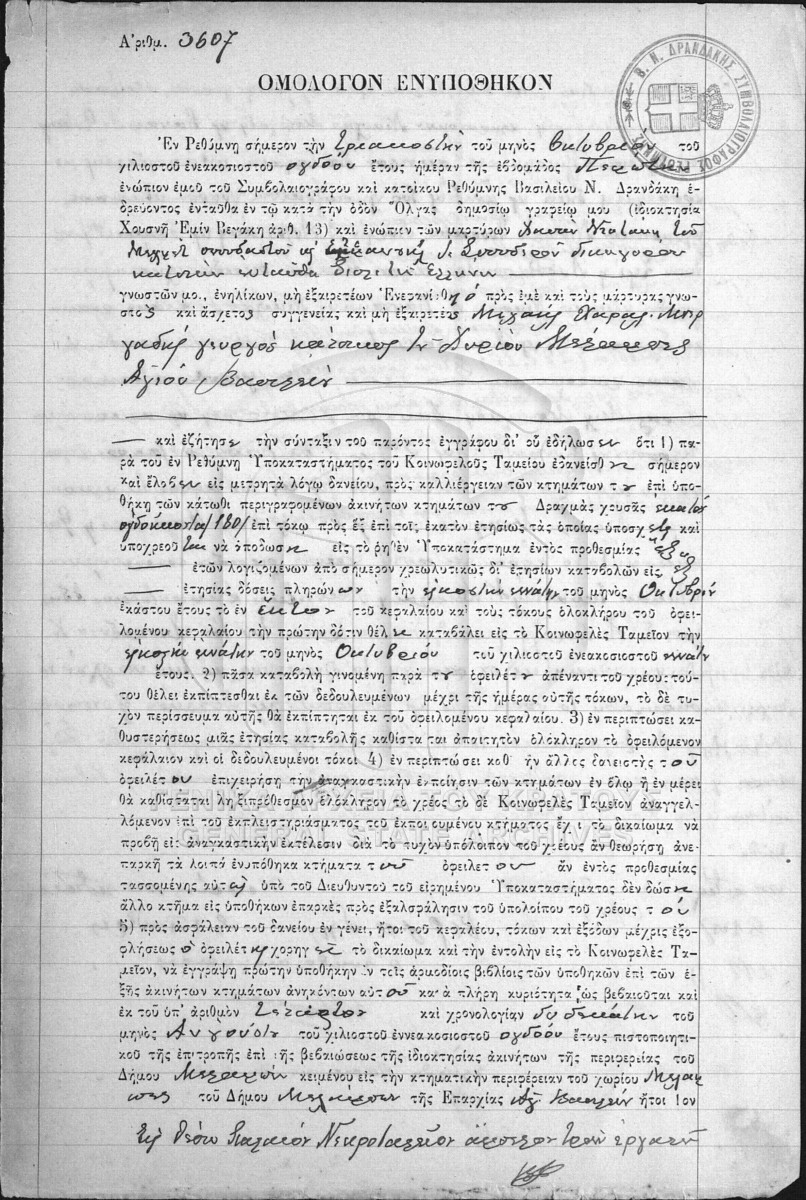 Ἀριθμ. 3607
Β. Ν. ΔΡΑΝΔΑΚΗΣ ΣΥΜΒΟΛΑΙΟΓΡΑΦΟΣ ΡΕΘΥΜΝΗΣ
ΟΜΟΛΟΓΟΝ ΕΝΥΠΟΘΗΚΟΝ
Ἐν Ρεθύμνῃ σήμερον τὴν τριακοστὴν τοῦ μηνὸς Ὀκτωβρίου τοῦ
χιλιοστοῦ ἐνεακοσιοστοῦ ὀγδόου ἔτους ἡμέραν τῆς ἑβδομάδος Πέμπτην
ἐνώπιον ἐμοῦ τοῦ Συμβολαιογράφου καὶ κατοίκου Ρεθύμνης Βασιλείου Ν. Δρανδάκη ἑ-
δρεύοντος ἐνταῦθα ἐν τῷ κατὰ τὴν ὁδὸν Ὄλγας δημοσίῳ γραφείῳ μου (ἰδιοκτησία
Χουσνῆ Ἐμὶν Βεγάκη ἀριθ. 13) καὶ ἐνώπιον τῶν μαρτύρων Χασὰν τοῦ
δικηγόρου
κατοίκων ἐνταῦθα Ἑλλήνων
γνωστῶν μο., ἐνηλίκων, μὴ ἐξαιρετέων Ἐνεφανίσθη ὁ πρὸς ἐμὲ καὶ τοὺς μάρτυρας γνω-
στος καὶ ἄσχετος συγγενείας καὶ μὴ ἐξαιρετέος Μιχαὴλ Χαραλ.
γεωργὸς κάτοικος τοῦ χωρίου
Ἁγίου Βασιλείου
καὶ ἐζήτησε τὴν σύνταξιν τοῦ παρόντος ἐγγράφου δι' οὗ ἐδήλωσεν ὅτι 1) πα-
ρὰ τοῦ ἐν Ρεθύμνῃ Ὑποκαταστήματος τοῦ Κοινωφελοῦς Ταμείου ἐδανείσθη σήμερον
καὶ ἔλαβεν εἰς μετρητὰ λόγῳ δανείου, πρὸς καλλιέργειαν τῶν κτημάτων του ἐπὶ ὑπο-
θήκῃ τῶν κάτωθι περιγραφομένων ἀκινήτων κτημάτων του Δραχμὰς χρυσᾶς ἑκατὸν
ὀγδοήκοντα /180/ ἐπὶ τόκῳ πρὸς ἓξ ἐπὶ τοῖς ἑκατὸν ἐτησίως τὰς ὁποίας ὑποσχεται καὶ
ὑποχρεοῦται νὰ ἀποδώσῃ εἰς τὸ ρηθὲν Ὑποκατάστημα ἐντὸς προθεσμίας ἓξ
ἐτῶν λογιζομένων ἀπὸ σήμερον χρεωλυτικῶς δι' ἐτησίων καταβολῶν εἰς ἓξ
ἐτησίας δόσεις πληρόνων τὴν εἰκοστὴν ἐννάτην τοῦ μηνὸς Ὀκτωβρίου
ἑκάστου ἔτους τὸ ἓν ἕκτον τοῦ κεφαλαίου καὶ τοὺς τόκους ὁλοκλήρου τοῦ ὀφει-
λομένου κεφαλαίου τὴν πρώτην δόσιν θέλει καταβάλει εἰς τὸ Κοινωφελὲς Ταμεῖον τὴν
εἰκοστὴν ἐννάτην τοῦ μηνὸς Ὀκτωβρίου τοῦ χιλιοστοῦ ἐνεακοσιοστοῦ ἐννάτου
ἔτους. 2) πᾶσα καταβολὴ γινομένη παρὰ τοῦ ὀφειλέτου ἀπέναντι τοῦ χρέους τού-
του θέλει ἐκπίπτεσθαι ἐκ τῶν δεδουλευμένων μέχρι τῆς ἡμέρας αὐτῆς τόκων, τὸ δὲ τυ-
χὸν περίσσευμα αὐτῆς θὰ ἐκπίπτηται ἐκ τοῦ ὀφειλομένου κεφαλαίου. 3) ἐν περιπτώσει κα-
θυστερήσεως μιᾶς ἐτησίας καταβολῆς καθίσταται ἀπαιτητὸν ὁλόκληρον τὸ ὀφειλόμενον
κεφάλαιον καὶ οἱ δεδουλευμένοι τόκοι 4) ἐν περιπτώσει καθ' ἣν ἄλλος δανειστὴς τοῦ
ὀφειλέτου ἐπιχειρήσῃ τὴν ἀναγκαστικὴν ἐκποίησιν τῶν κτημάτων ἐν ὅλῳ ἢ ἐν μέρει
θὰ καθίσταται ληξιπρόθεσμον ὁλόκληρον τὸ χρέος τὸ δὲ Κοινωφελὲς Ταμεῖον ἀναγγελ-
λόμενον ἐπὶ τοῦ ἐκπλειστηριάσματος τοῦ ἐκποιουμένου κτήματος ἔχει τὸ δικαίωμα νὰ
προβῇ εἰς ἀναγκαστικὴν ἐκτέλεσιν διὰ τὸ τυχὸν ὑπόλοιπον τοῦ χρέους ἂν θεωρήσῃ ἀνε-
παρκῆ τὰ λοιπὰ ἐνυπόθηκα κτήματα τοῦ ὀφειλέτου ἂν ἐντὸς προθεσμίας
τασσομένης αὐτῷ ὑπὸ τοῦ Διευθυντοῦ τοῦ εἰρημένου Ὑποκαταστήματος δὲν δώσῃ
ἄλλο κτῆμα εἰς ὑποθήκων ἐπαρκὲς πρὸς ἐξασφάλησιν τοῦ ὑπολοίπου τοῦ χρέους του
5) πρὸς ἀσφάλειαν τοῦ δανείου ἐν γένει, ἤτοι τοῦ κεφαλέου, τόκων καὶ ἐξόδων μέχρις ἐξο-
φλήσεως ὁ ὀφειλέτης χορηγεῖ τὸ δικαίωμα καὶ τὴν ἐντολὴν εἰς τὸ Κοινωφελὲς Τα-
μεῖον, νὰ ἐγγράψῃ πρώτην ὑποθήκην ἐν τοῖς ἁρμοδίοις βιβλίοις τῶν ὑποθηκῶν ἐπὶ τῶν ἑ-
ξῆς ἀκινήτων κτημάτων ἀνηκόντων αὐτοῦ κατὰ πλήρη κυριότητα ὡς βεβαιοῦται καὶ
ἐκ τοῦ ὑπ' ἀριθμὸν τέταρτον καὶ χρονολογίαν δωδεκάτην τοῦ
μηνὸς Αὐγούστου τοῦ χιλιοστοῦ ἐννεακοσιοστοῦ ὀγδόου ἔτους πιστοποιητι-
κοῦ τῆς ἐπιτροπῆς ἐπὶ τῆς βεβαιώσεως τῆς ἰδιοκτησίας ἀκινήτων τῆς περιφερείας τοῦ
Δήμου Μελάμπων κειμένου εἰς τὴν κτηματικὴν περιφέρειαν τοῦ χωρίου Μέλαμ
πες τοῦ Δήμου Μελάμπων τῆς Ἐπαρχίας Ἁγ. Βασιλείου ἤτοι 1ον
Εἰς θέσιν Παλαιὸν Νεκροταφεῖον ἄμπελον τριῶν ἐργατῶν
ΓΕΝΙΚΑ ΑΡΧΕΙΑ ΤΟΥ ΚΡΑΤΟΥΣ
GENERAL STATE ARCHIVES